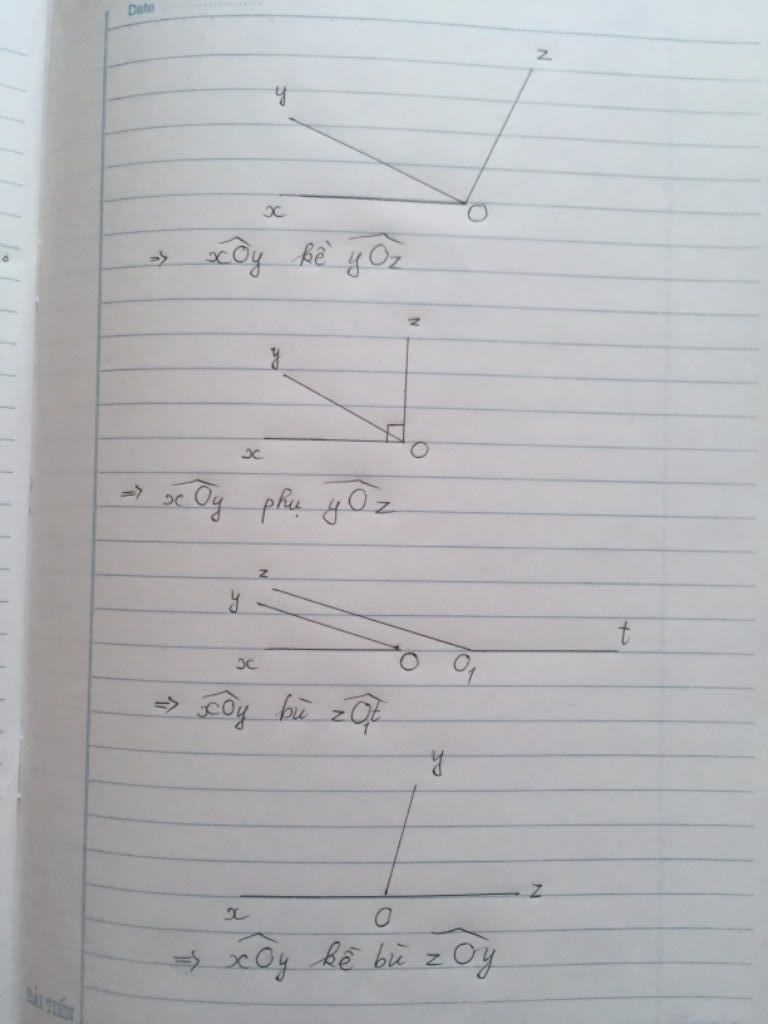 Date
z
y
x O
=> xOy kề yOz
z
y
x O
=> xOy phụ yOz
z
y
t
x O O1
=> xOy bù zO1t
y
z
x O
=> xOy kề bù zOy
HẢI TIẾN